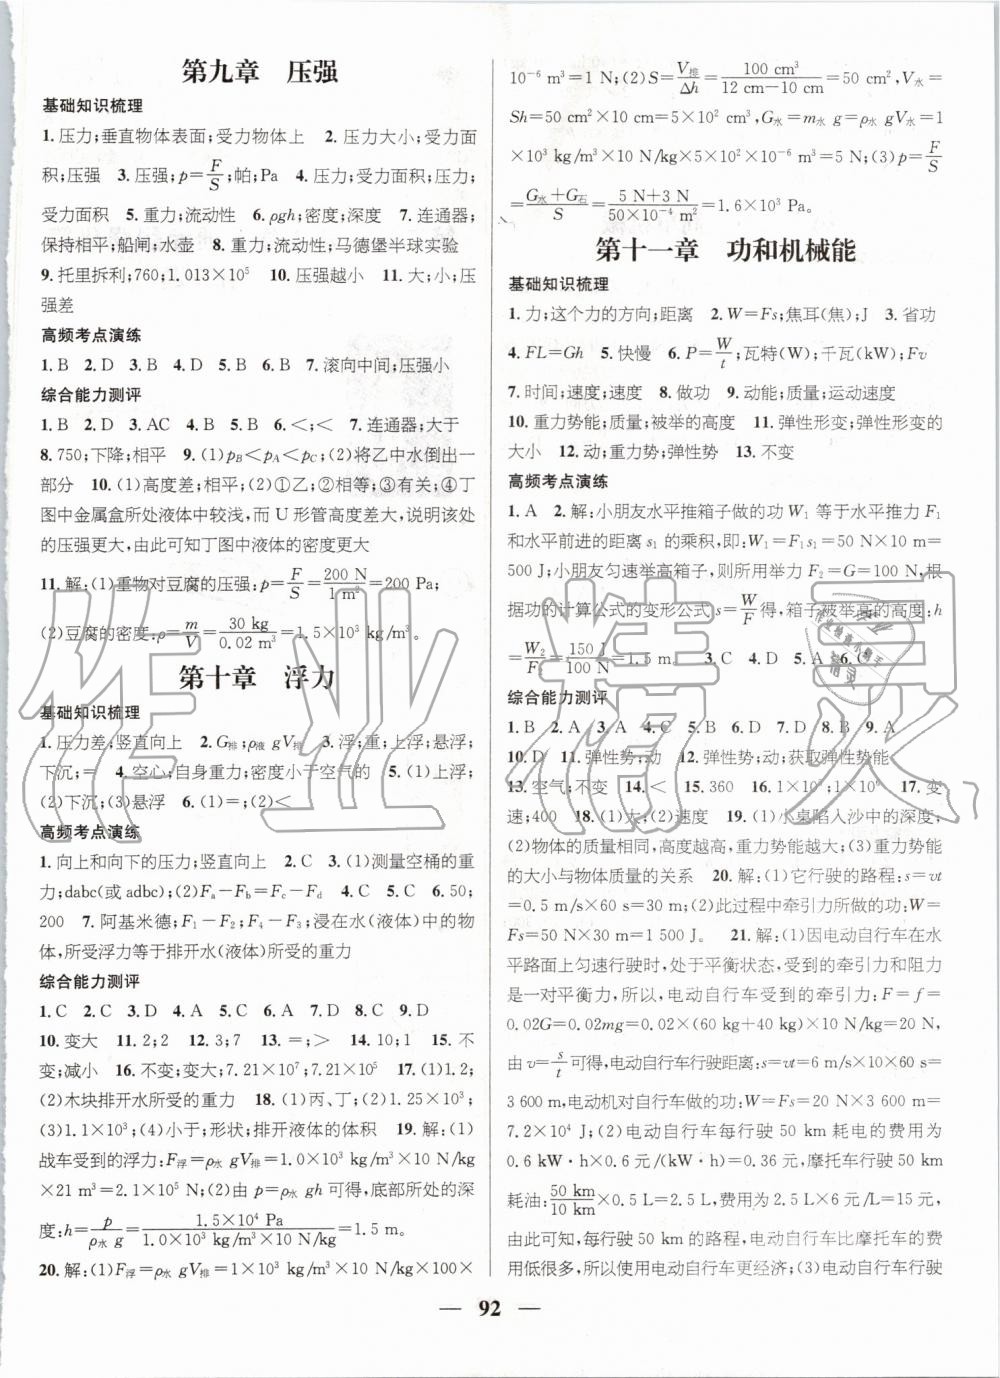 第九章　压强
基础知识梳理
1.压力;垂直物体表面;受力物体上　2.压力大小;受力面
积;压强　3.压强;p=F/S;帕;Pa　4.压力;受力面积;压力;
受力面积　5.重力;流动性　6.ρgh;密度;深度　7.连通器;
保持相平;船闸;水壶　8.重力;流动性;马德堡半球实验
9.托里拆利;760;1.013×10⁵　10.压强越小　11.大;小;压
强差
高频考点演练
1.B　2.D　3.B　4.D　5.B　6.B　7.滚向中间;压强小
综合能力测评
1.B　2.D　3.AC　4.B　5.B　6.<;<　7.连通器;大于
8.750;下降;相平　9.(1)p_B<p_A<p_C;(2)将乙中水倒出一
部分　10.(1)高度差;相平;(2)①乙;②相等;③有关;④丁
图中金属盒所处液体中较浅,而 U 形管高度差大,说明该处
的压强更大,由此可知丁图中液体的密度更大
11.解:(1)重物对豆腐的压强:p=F/S=200 N/1 m²=200 Pa;
(2)豆腐的密度:ρ=m/V=30 kg/0.02 m³=1.5×10³ kg/m³。
第十章　浮力
基础知识梳理
1.压力差;竖直向上　2.G排;ρ液 gV排　3.浮;重;上浮;悬浮;
下沉;=　4.空心;自身重力;密度小于空气的　5.(1)上浮;
(2)下沉;(3)悬浮　6.(1)=;(2)<
高频考点演练
1.向上和向下的压力;竖直向上　2.C　3.(1)测量空桶的重
力;dabc(或 adbc);(2)F_a−F_b=F_c−F_d　4.C　5.C　6.50;
200　7.阿基米德;F₁−F₂;F₄−F₃;浸在水(液体)中的物
体,所受浮力等于排开水(液体)所受的重力
综合能力测评
1.C　2.C　3.D　4.A　5.D　6.A　7.C　8.C　9.D
10.变大　11.2;2　12.3;7　13.=;>　14.10;1　15.不
变;减小　16.不变;变大;7.21×10⁷;7.21×10⁵　17.(1)1.2;
(2)木块排开水所受的重力　18.(1)丙、丁;(2)1.25×10³;
(3)1.1×10³;(4)小于;形状;排开液体的体积　19.解:(1)
战车受到的浮力:F浮=ρ水 gV排=1.0×10³ kg/m³×10 N/kg
×21 m³=2.1×10⁵ N;(2)由 p=ρ水 gh 可得,底部所处的深
度:h=p/ρ水 g=1.5×10⁴ Pa/1.0×10³ kg/m³×10 N/kg=1.5 m。
20.解:(1)F浮=ρ水 gV排=1×10³ kg/m³×10 N/kg×100×
10⁻⁶ m³=1 N;(2)S=V排/Δh=100 cm³/12 cm−10 cm=50 cm²,V水=
Sh=50 cm²×10 cm=5×10² cm³,G水=m水 g=ρ水 gV水=1
×10³ kg/m³×10 N/kg×5×10² cm³=5 N;(3)p=F/S
=G水+G石/S=5 N+3 N/50×10⁻⁴ m²=1.6×10³ Pa。
第十一章　功和机械能
基础知识梳理
1.力;这个力的方向;距离　2.W=Fs;焦耳(焦);J　3.省功
4.FL=Gh　5.快慢　6.P=W/t;瓦特(W);千瓦(kW);Fv
7.时间;速度;速度　8.做功　9.动能;质量;运动速度
10.重力势能;质量;被举的高度　11.弹性形变;弹性形变的
大小　12.动;重力势;弹性势　13.不变
高频考点演练
1.A　2.解:小朋友水平推箱子做的功 W₁ 等于水平推力 F₁
和水平前进的距离 s₁ 的乘积,即:W₁=F₁s₁=50 N×10 m=
500 J;小朋友匀速举高箱子,则所用举力 F₂=G=100 N,根
据功的计算公式的变形公式 s=W/F得,箱子被举高的高度:h
=W₂/F₂=150 J/100 N=1.5 m。　3.C　4.C　5.A　6.
综合能力测评
1.B　2.A　3.A　4.C　5.B　6.D　7.D　8.B　9.A
10.D　11.弹性势;动　12.弹性势;动;获取弹性势能
13.空气;不变　14.<　15.360　16.1×10⁵;1×10⁶　17.变
速;400　18.(1)大;(2)大于　19.(1)小桌陷入沙中的深度;
(2)物体的质量相同,高度越高,重力势能越大;(3)重力势能
的大小与物体质量的关系　20.解:(1)它行驶的路程:s=vt
=0.5 m/s×60 s=30 m;(2)此过程中牵引力所做的功:W=
Fs=50 N×30 m=1 500 J。　21.解:(1)因电动自行车在水
平路面上匀速行驶时,处于平衡状态,受到的牵引力和阻力
是一对平衡力,所以,电动自行车受到的牵引力:F=f=
0.02G=0.02mg=0.02×(60 kg+40 kg)×10 N/kg=20 N,
由 v=s/t可得,电动自行车行驶距离:s=vt=6 m/s×10×60 s=
3 600 m,电动机对自行车做的功:W=Fs=20 N×3 600 m=
7.2×10⁴ J;(2)电动自行车每行驶 50 km 耗电的费用为
0.6 kW·h×0.6 元/(kW·h)=0.36 元,摩托车行驶 50 km
耗油:50 km/10 km×0.5 L=2.5 L,费用为 2.5 L×6 元/L=15 元,
由此可知,每行驶 50 km 的路程,电动自行车比摩托车的费
用低很多,所以使用电动自行车更经济;(3)电动自行车行驶
— 92 —
作业精灵